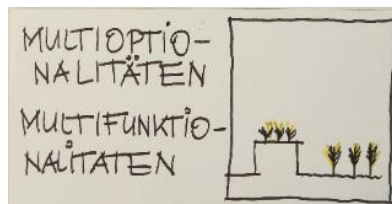 MULTIOPTIO-
NALITÄTEN
MULTIFUNKTIO-
NALITATEN